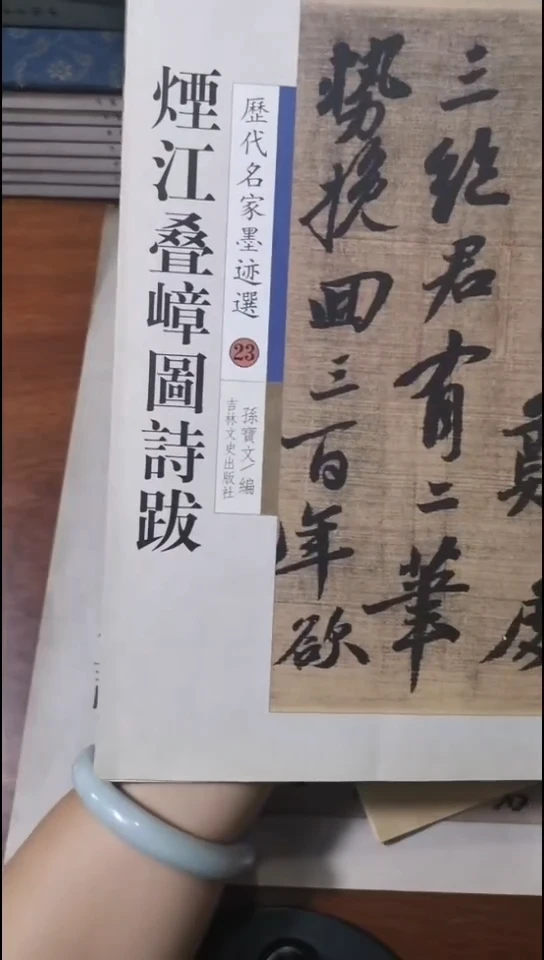 煙江叠嶂圖詩跋
歷代名家墨迹選
23
孫寶文/編
吉林文史出版社
三絕君有二筆
勢挽回三百年欲